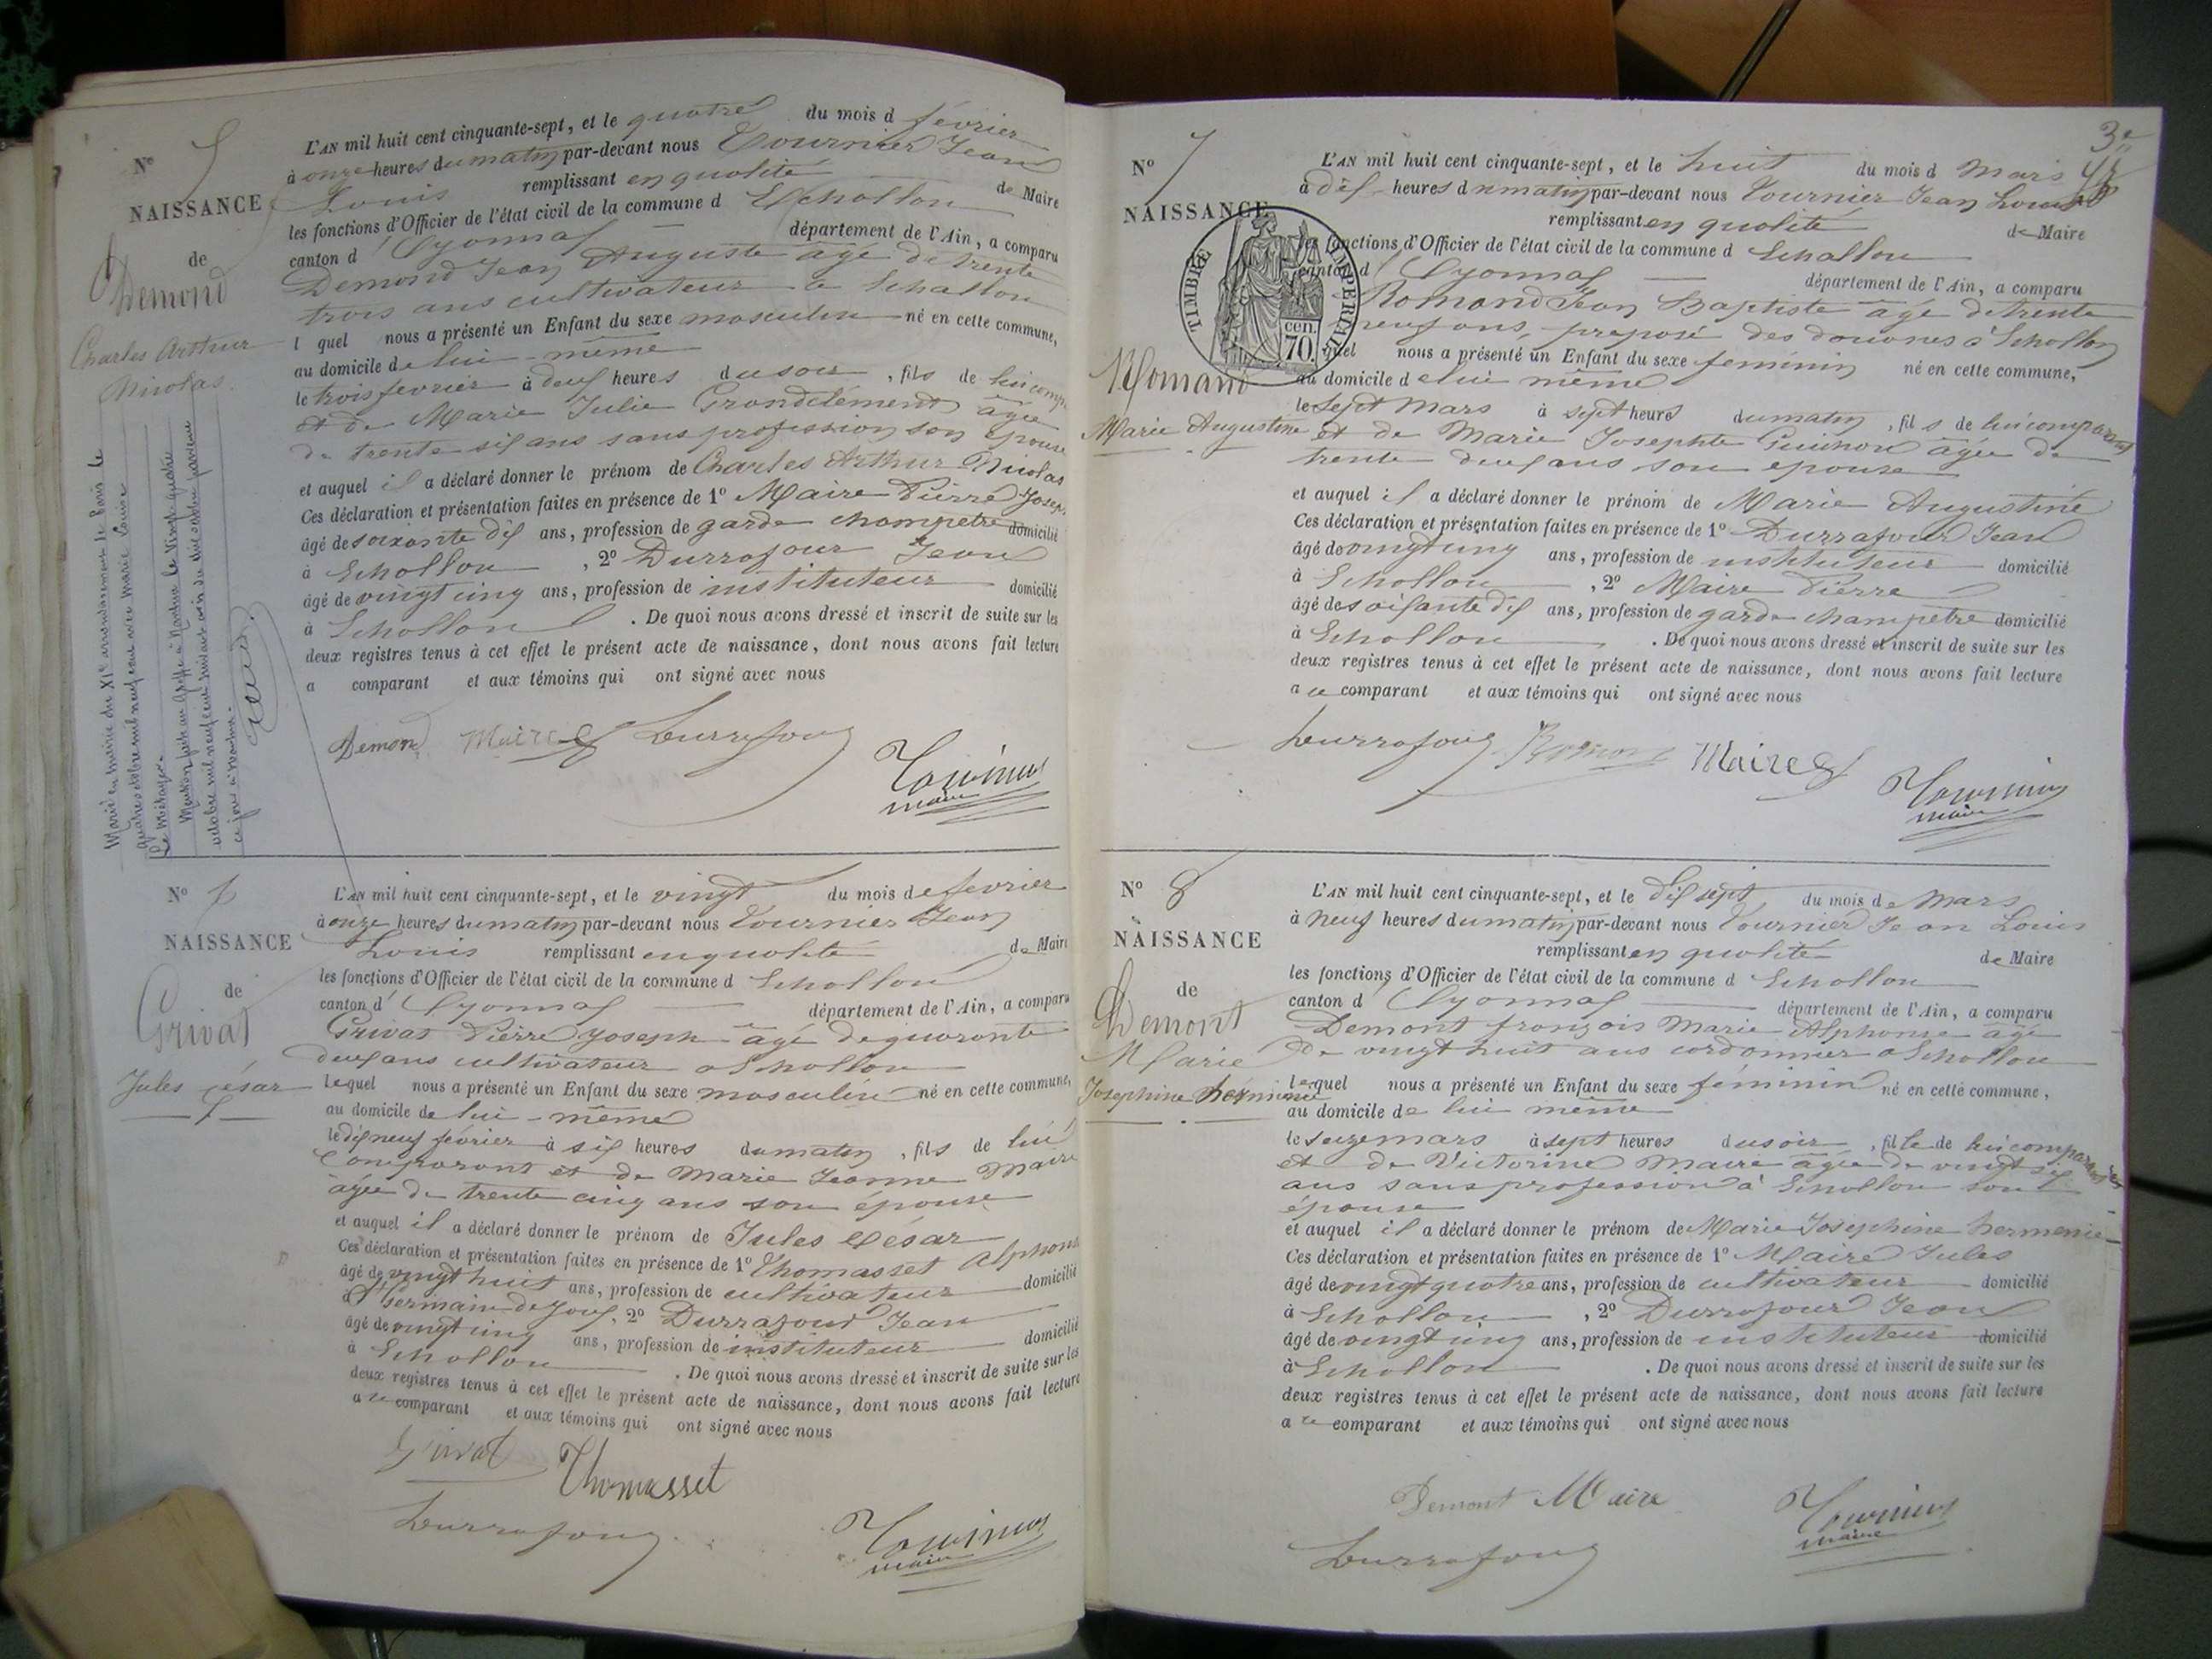 N° 5
NAISSANCE
de
Demond
Charles Arthur
Nicolas.
Marié en mairie du XIe arrondissement de Paris le
quatre octobre mil neuf cent avec Marie Louise
Mention faite au Greffe à Nantua le vingt quatre
octobre mil neuf cent suivant avis de
ce jour à Nantua.
L'AN mil huit cent cinquante-sept, et le quatre du mois d février
à onze heures du matin par-devant nous Tournier Jean
Louis remplissant en qualité de Maire
les fonctions d'Officier de l'état civil de la commune d Echallon
canton d' Oyonnax département de l'Ain, a comparu
Demond Jean Auguste âgé de trente
trois ans cultivateur a Echallon
l quel nous a présenté un Enfant du sexe masculin né en cette commune,
au domicile de lui-même
le trois fevrier à deux heures du soir, fils de lui comp.
et de Marie Julie Grandclément âgée
de trente six ans sans profession son épouse
et auquel il a déclaré donner le prénom de Charles Arthur Nicolas
Ces déclaration et présentation faites en présence de 1° Maire Pierre Josep.
âgé de soixante dix ans, profession de garde champetre domicilié
à Echallon, 2° Durrafour Jean
âgé de vingt cinq ans, profession de instituteur domicilié
à Echallon. De quoi nous avons dressé et inscrit de suite sur les
deux registres tenus à cet effet le présent acte de naissance, dont nous avons fait lecture
a comparant et aux témoins qui ont signé avec nous
Demond Maire Durrafour
Tournier
maire
N° 6
NAISSANCE
de
Grivat
Jules César
L'AN mil huit cent cinquante-sept, et le vingt du mois de fevrier
à onze heures du matin par-devant nous Tournier Jean
Louis remplissant en qualité de Maire
les fonctions d'Officier de l'état civil de la commune d Echallon
canton d' Oyonnax département de l'Ain, a comparu
Grivat Pierre Joseph âgé de quarante
deux ans cultivateur a Echallon
lequel nous a présenté un Enfant du sexe masculin né en cette commune,
au domicile de lui-même
le dix neuf février à six heures du matin, fils de lui
comparant et de Marie Jeanne Maire
âgée de trente cinq ans son épouse
et auquel il a déclaré donner le prénom de Jules César
Ces déclaration et présentation faites en présence de 1° Thomasset Alphons
âgé de vingt huit ans, profession de cultivateur domicilié
à St Germain de Joux, 2° Durrafour Jean
âgé de vingt cinq ans, profession de instituteur domicilié
à Echallon. De quoi nous avons dressé et inscrit de suite sur les
deux registres tenus à cet effet le présent acte de naissance, dont nous avons fait lecture
a ce comparant et aux témoins qui ont signé avec nous
Grivat Thomasset
Durrafour Tournier
maire
3e
N° 7
NAISSANCE
TIMBRE IMPERIAL
cen.
70.
Romand
Marie Augustine
L'AN mil huit cent cinquante-sept, et le huit du mois d Mars
à dix heures du matin par-devant nous Tournier Jean Louis
remplissant en qualité de Maire
les fonctions d'Officier de l'état civil de la commune d Echallon
canton d' Oyonnax département de l'Ain, a comparu
Romand Jean Baptiste âgé de trente
neuf ans, préposé des douanes à Echallon
quel nous a présenté un Enfant du sexe feminin né en cette commune,
au domicile d e lui même
le sept Mars à sept heures du matin, fil s de lui comparant
et de Marie Josephte Guichon âgée de
trente deux ans son epouse
et auquel il a déclaré donner le prénom de Marie Augustine
Ces déclaration et présentation faites en présence de 1° Durrafour Jean
âgé de vingt cinq ans, profession de instituteur domicilié
à Echallon, 2° Maire Pierre
âgé de soixante dix ans, profession de garde champetre domicilié
à Echallon. De quoi nous avons dressé et inscrit de suite sur les
deux registres tenus à cet effet le présent acte de naissance, dont nous avons fait lecture
a ce comparant et aux témoins qui ont signé avec nous
Durrafour Romand Maire
Tournier
maire
N° 8
NAISSANCE
de
Demont
Marie
Josephine herminie
L'AN mil huit cent cinquante-sept, et le dix sept du mois de Mars
à neuf heures du matin par-devant nous Tournier Jean Louis
remplissant en qualité de Maire
les fonctions d'Officier de l'état civil de la commune d Echallon
canton d' Oyonnax département de l'Ain, a comparu
Demont françois Marie Alphonse âgé
de vingt huit ans cordonnier a Echallon
lequel nous a présenté un Enfant du sexe féminin né en cette commune,
au domicile de lui même
le seize mars à sept heures du soir, fille de lui comparant
et de Victorine Maire âgée de vingt six
ans sans profession à Echallon son
épouse
et auquel il a déclaré donner le prénom de Marie Josephine hermenie
Ces déclaration et présentation faites en présence de 1° Maire Jules
âgé de vingt quatre ans, profession de cultivateur domicilié
à Echallon, 2° Durrafour Jean
âgé de vingt cinq ans, profession de instituteur domicilié
à Echallon. De quoi nous avons dressé et inscrit de suite sur les
deux registres tenus à cet effet le présent acte de naissance, dont nous avons fait lecture
a ce comparant et aux témoins qui ont signé avec nous
Demont Maire
Tournier
maire
Durrafour